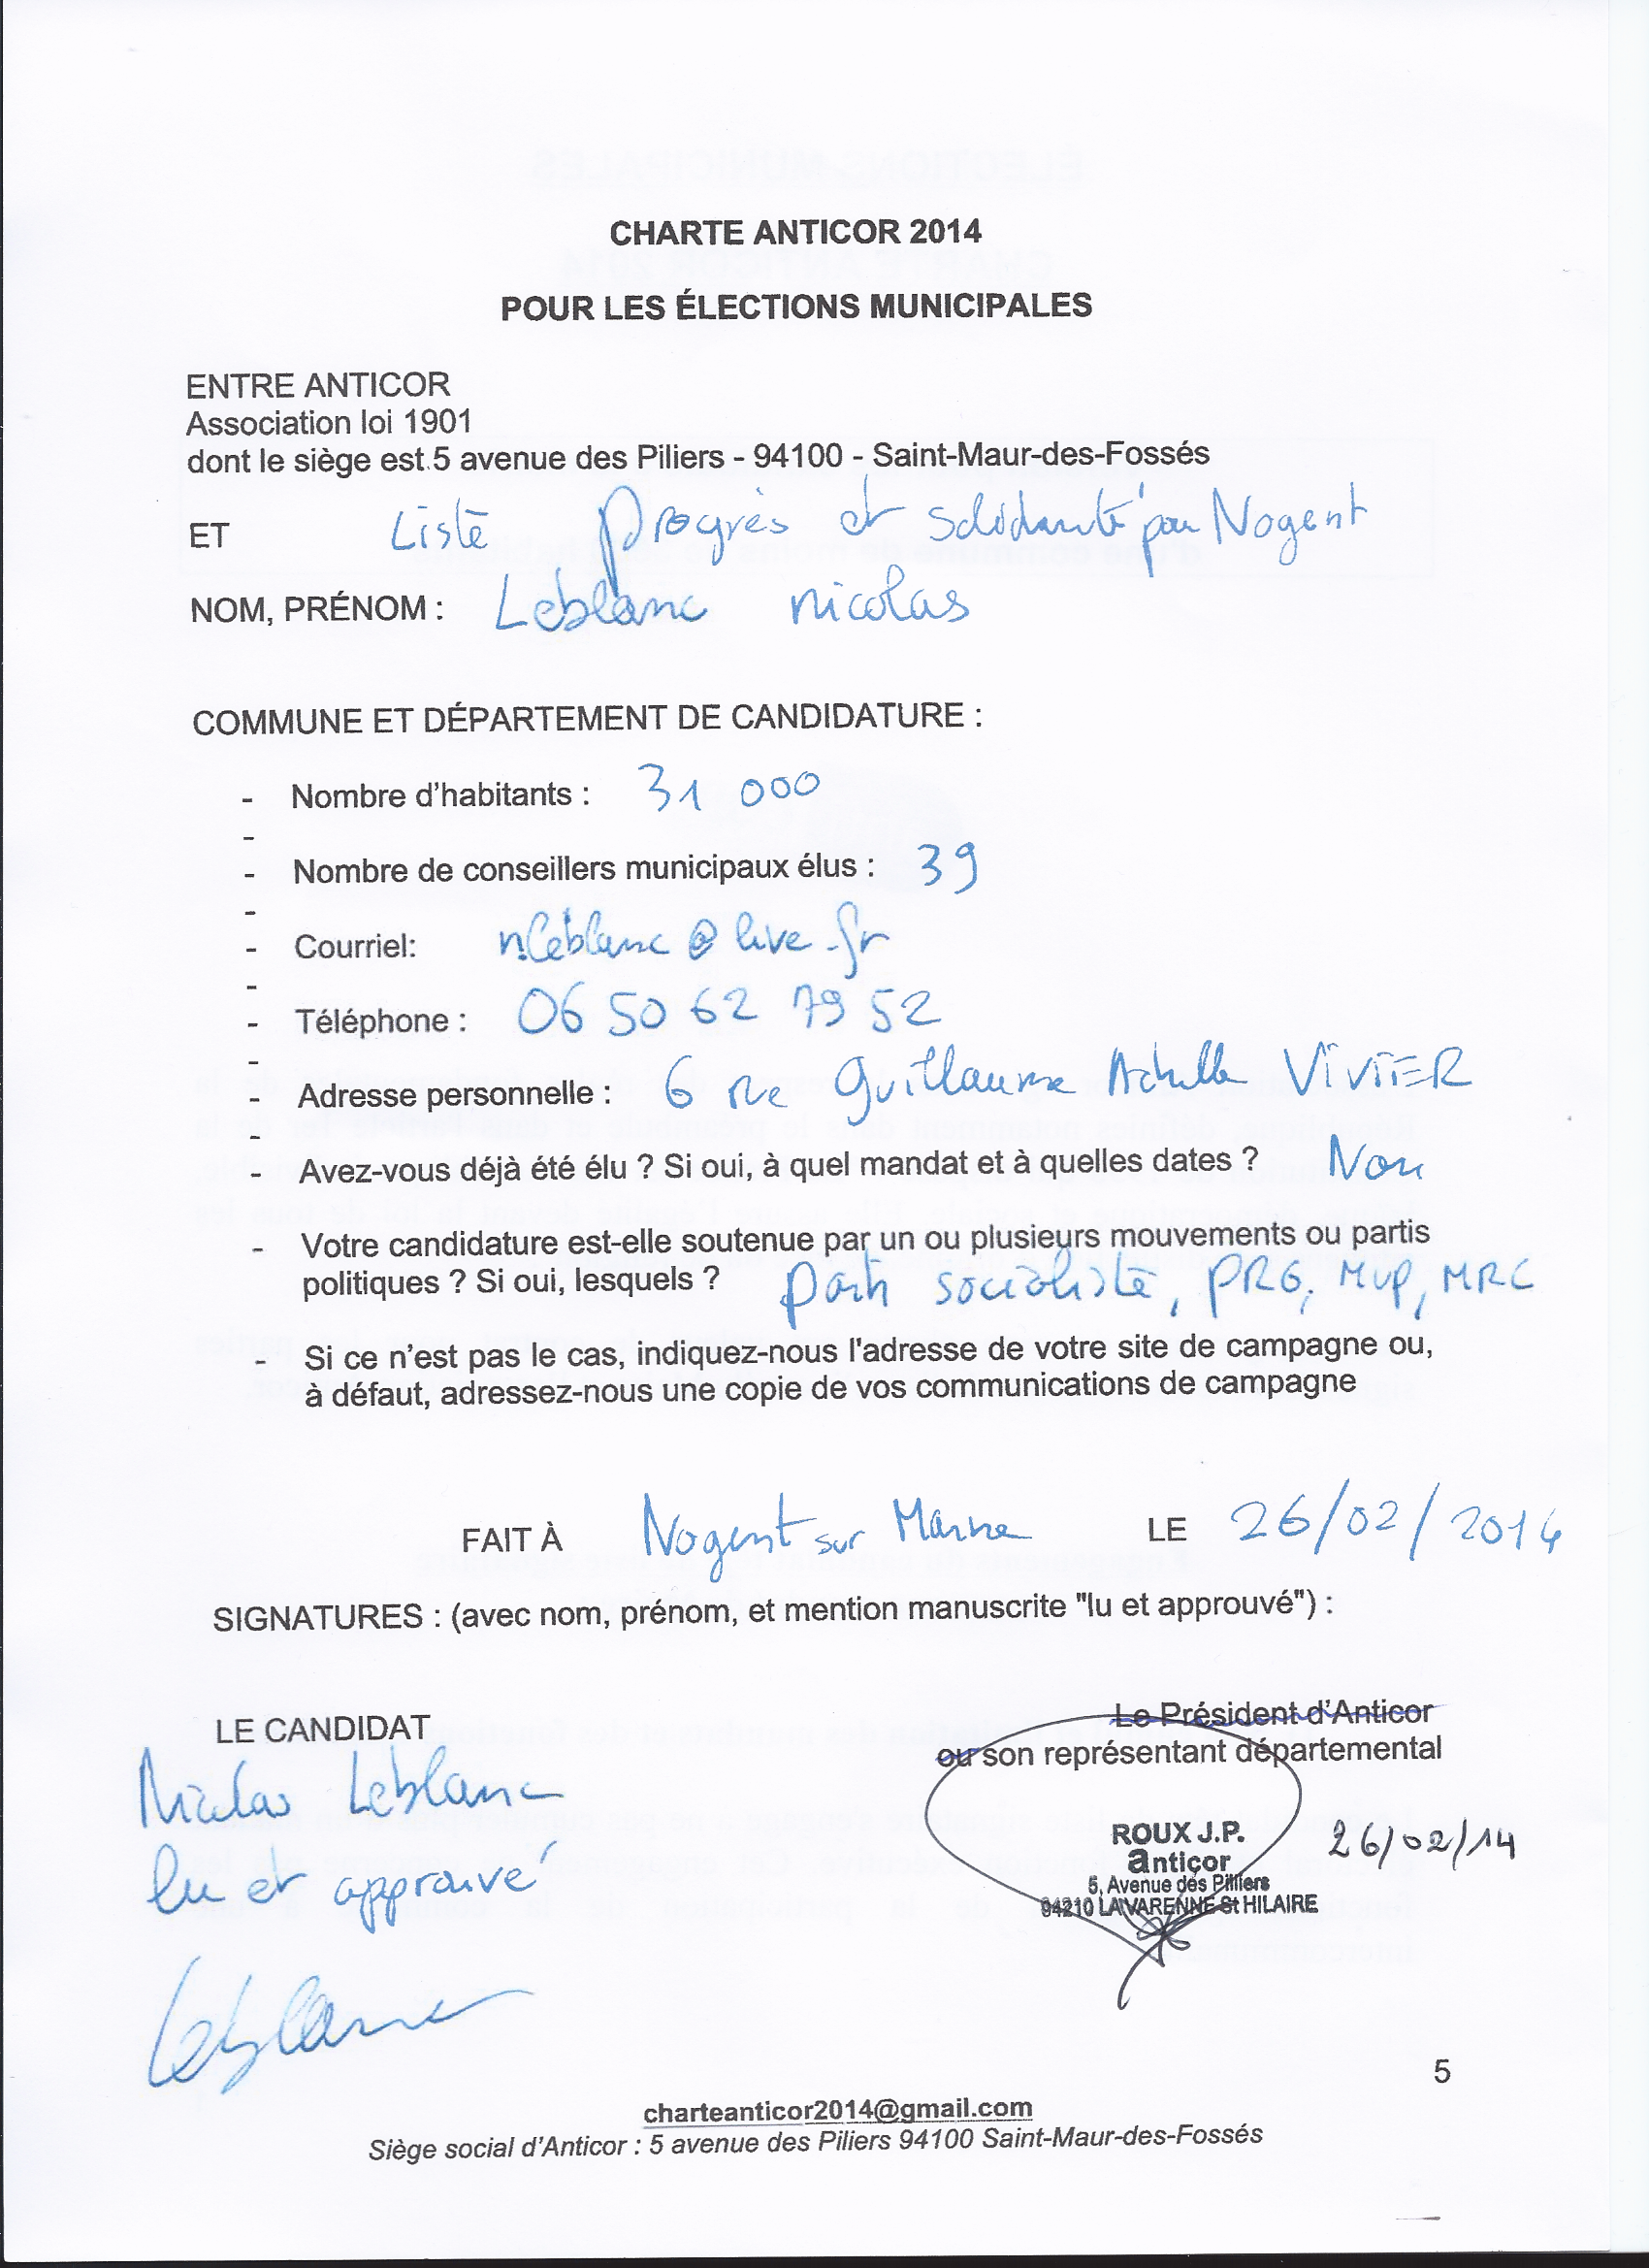 CHARTE ANTICOR 2014
POUR LES ÉLECTIONS MUNICIPALES
ENTRE ANTICOR
Association loi 1901
dont le siège est 5 avenue des Piliers - 94100 - Saint-Maur-des-Fossés
ET Liste Progrès et solidarité pour Nogent
NOM, PRÉNOM : Leblanc nicolas
COMMUNE ET DÉPARTEMENT DE CANDIDATURE :
- Nombre d'habitants : 31 000
-
- Nombre de conseillers municipaux élus : 39
-
- Courriel: nleblanc@live.fr
-
- Téléphone : 06 50 62 79 52
-
- Adresse personnelle : 6 rue Guillaume Achille VIVIER
-
- Avez-vous déjà été élu ? Si oui, à quel mandat et à quelles dates ? Non
- Votre candidature est-elle soutenue par un ou plusieurs mouvements ou partis
politiques ? Si oui, lesquels ? Parti socialiste, PRG, MUP, MRC
- Si ce n'est pas le cas, indiquez-nous l'adresse de votre site de campagne ou,
à défaut, adressez-nous une copie de vos communications de campagne
FAIT À Nogent sur Marne LE 26/02/2014
SIGNATURES : (avec nom, prénom, et mention manuscrite "lu et approuvé") :
LE CANDIDAT
Nicolas Leblanc
lu et approuvé
Leblanc
Le Président d'Anticor
ou son représentant départemental
ROUX J.P.
anticor
5, Avenue des Pilliers
94210 LA VARENNE St HILAIRE
26/02/14
5
charteanticor2014@gmail.com
Siège social d'Anticor : 5 avenue des Piliers 94100 Saint-Maur-des-Fossés